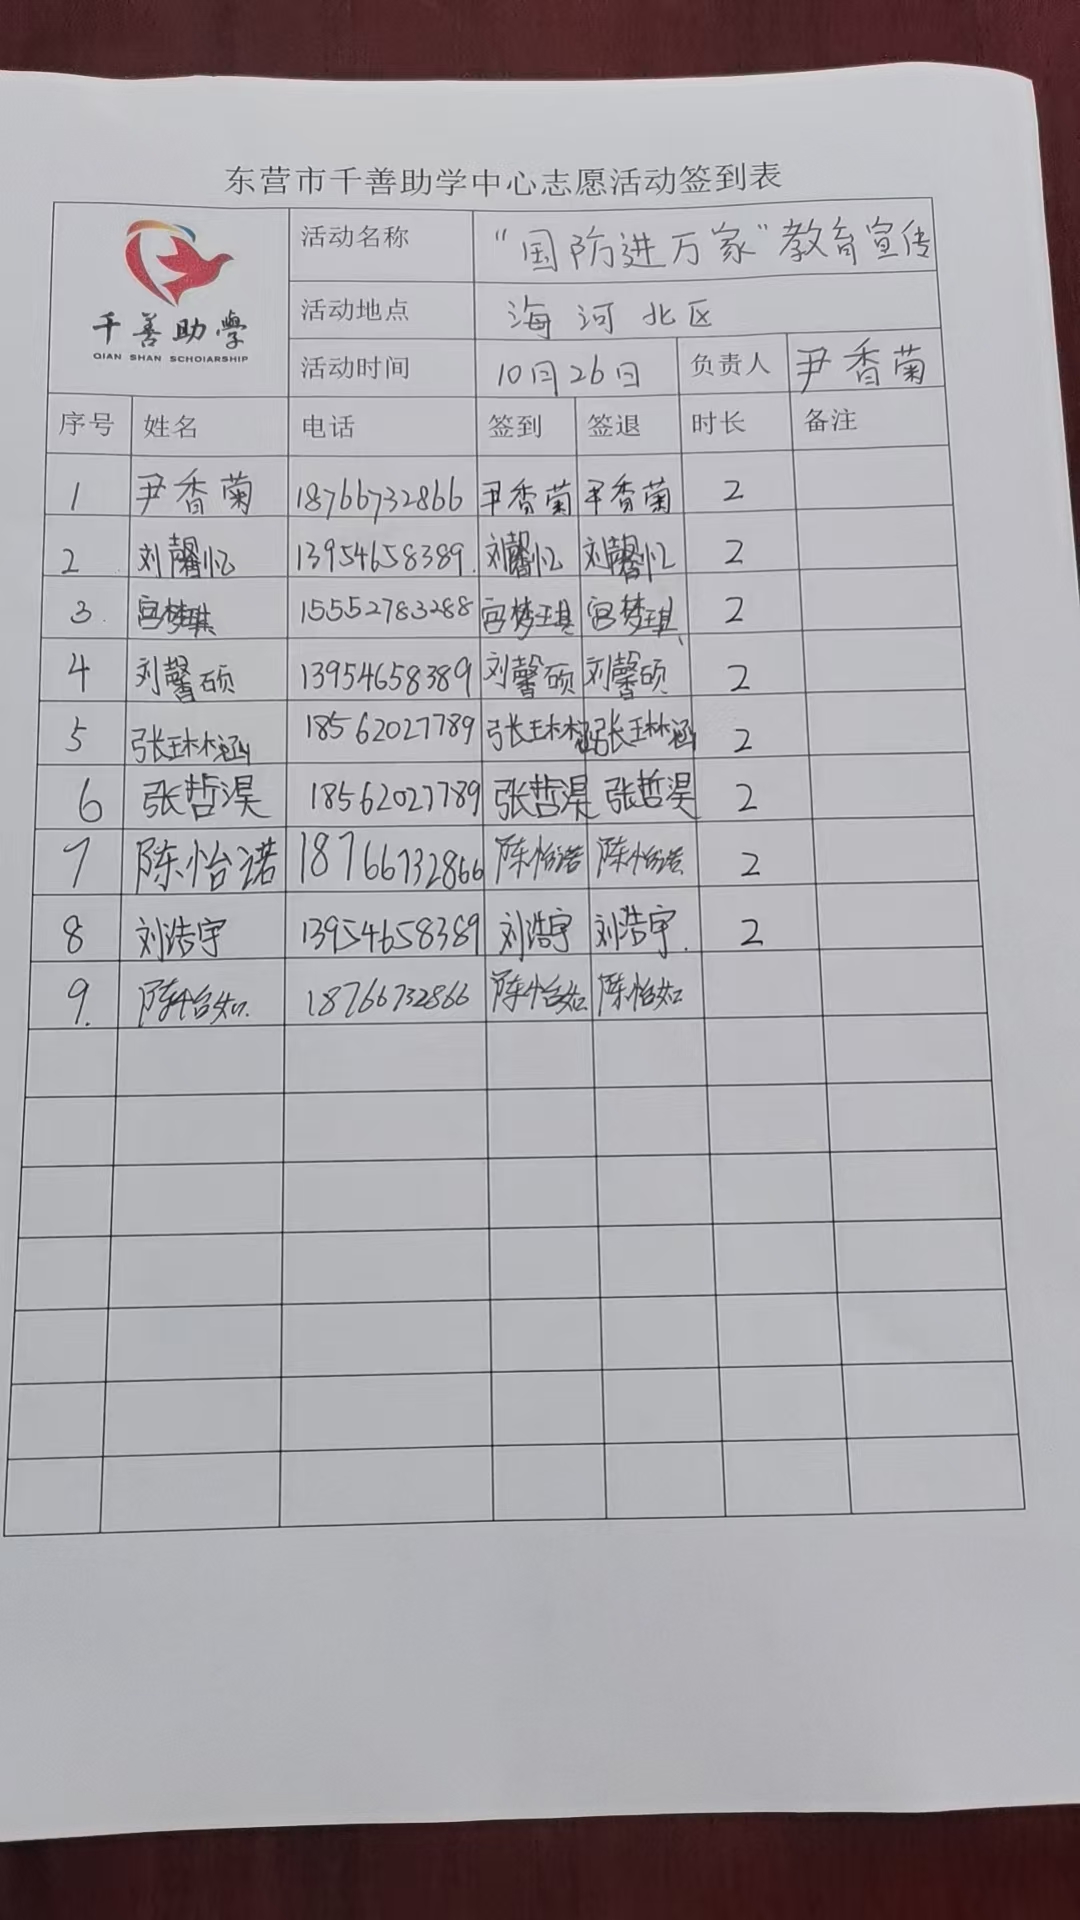 东营市千善助学中心志愿活动签到表
千善助學
QIAN SHAN SCHOlARSHIP
活动名称 “国防进万家”教育宣传
活动地点 海河北区
活动时间 10月26日 负责人 尹香菊
序号 姓名 电话 签到 签退 时长 备注
1 尹香菊 18766732866 尹香菊 尹香菊 2
2 刘馨忆 13954658389 刘馨忆 刘馨忆 2
3 宫梦琪 15552783288 宫梦琪 宫梦琪 2
4 刘馨硕 13954658389 刘馨硕 刘馨硕 2
5 张琳涵 18562027789 张琳涵 张琳涵 2
6 张哲淏 18562027789 张哲淏 张哲淏 2
7 陈怡诺 18766732866 陈怡诺 陈怡诺 2
8 刘浩宇 13954658389 刘浩宇 刘浩宇 2
9. 陈怡如 18766732866 陈怡如 陈怡如